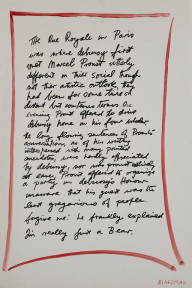 The Rue Royale in Paris
was where debussy first
met Marcel Proust utterly
different in their social though
not their artistic outlook, they
had been for some time
distant but courteous terms One
evening Proust offered to drive
debussy home in his four wheeler
The long flowing sentences of Proust's
conversation, as of his writing
interspersed with many pointed
anecdotes, were hardly appreciated
by debussy, nor was
at ease. Proust offered to organise
a party in debussy's Honour
unaware that his guest was the
least gregarious of people.
forgive me! he frankly explained
I'm really just a Bear.